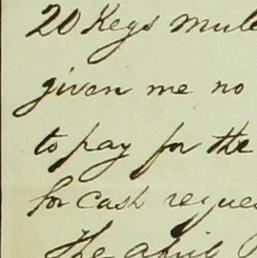 20 Kegs mule
given me no
to pay for the
for cash reques
the